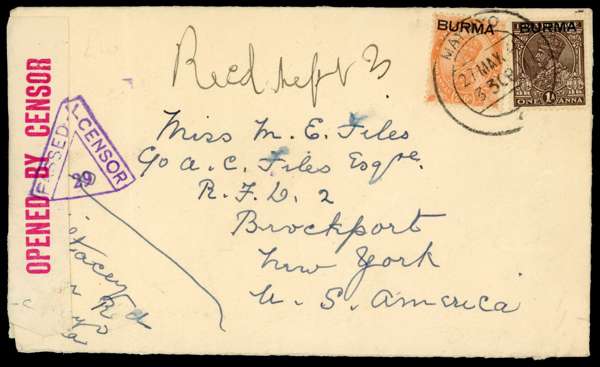 OPENED BY CENSOR
PASSED
CENSOR
29
Recd Sept 3
BURMA
BURMA
ONE 1A ANNA
MAYMYO
27 MAY
Miss M. E. Files
c/o A. C. Files Esqre.
R. F. D. 2
Brockport
New York
U. S. America